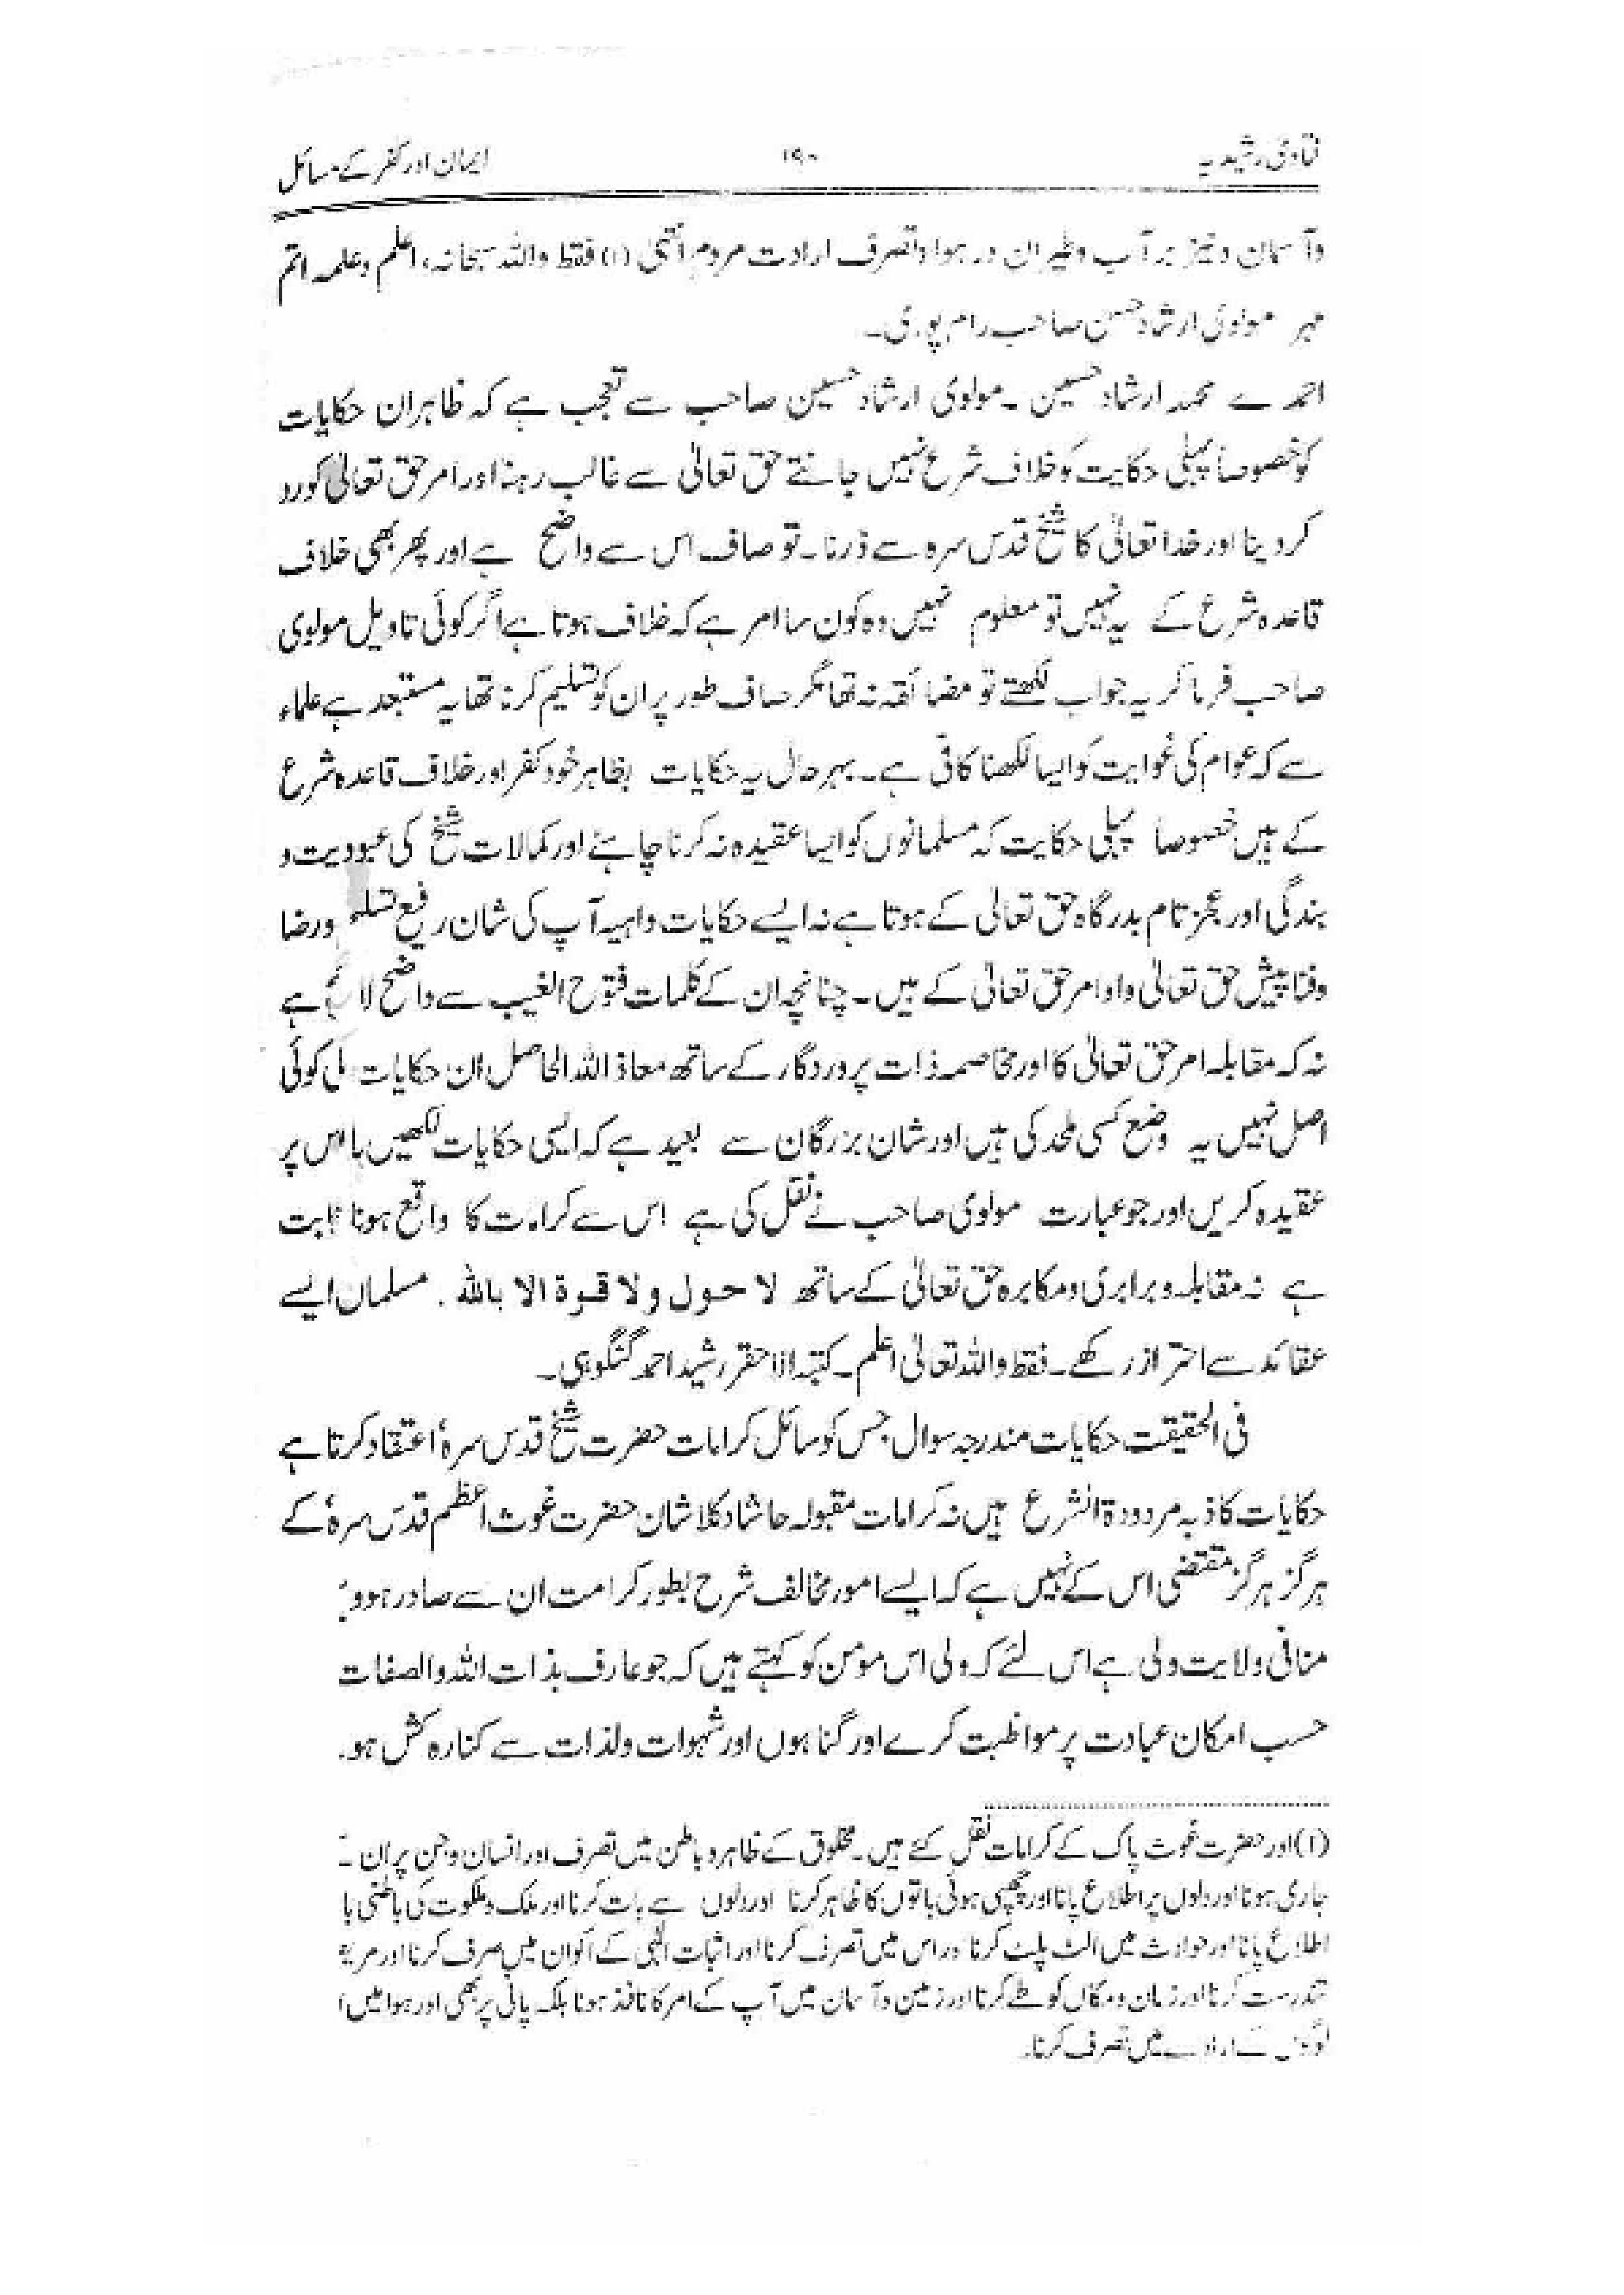 فتاویٰ رشیدیہ ۱۹۰ ایمان اور کفر کے مسائل
وآسمان ونیز بر آب وطیران در ہوا وتصرف ارادت مردم انتہیٰ (۱) فقط واللہ سبحانہ، اعلم وعلمہ اتم
مہر مولوی ارشاد حسین صاحب رام پوری۔
احمد محمد ارشاد حسین ۔ مولوی ارشاد حسین صاحب سے تعجب ہے کہ ظاہر ان حکایات
کو خصوصاً پہلی حکایت کو خلاف شرع نہیں جانتے حق تعالیٰ سے غالب رہنا اور امر حق تعالیٰ کو رد
کر دینا اور خدا تعالیٰ کا شیخ قدس سرہ سے ڈرنا۔ تو صاف اس سے واضح ہے اور پھر بھی خلاف
قاعدہ شرع کے یہ نہیں تو معلوم نہیں وہ کون سا امر ہے کہ خلاف ہوتا ہے اگر کوئی تاویل مولوی
صاحب فرما کر یہ جواب لکھتے تو مضائقہ نہ تھا مگر صاف طور پر ان کو تسلیم کرنا تھا یہ مستبعد ہے علماء
سے کہ عوام کی غوایت کو ایسا لکھنا کافی ہے۔ بہر حال یہ حکایات بظاہر خود کفر اور خلاف قاعدہ شرع
کے ہیں خصوصاً پہلی حکایت کہ مسلمانوں کو ایسا عقیدہ نہ کرنا چاہئے اور کمالات شیخ کی عبودیت و
بندگی اور عجز تام بدرگاہ حق تعالیٰ کے ہوتا ہے نہ ایسے حکایات واہیہ آپ کی شان رفیع ورضا
وفنا پیش حق تعالیٰ واوامر حق تعالیٰ کے ہیں۔ چنانچہ ان کے کلمات فتوح الغیب سے واضح ہے
نہ کہ مقابلہ امر حق تعالیٰ کا اور مخاصمہ ذات پروردگار کے ساتھ معاذ اللہ الحاصل ان حکایات کوئی
اصل نہیں یہ وضع کسی ملحد کی ہیں اور شان بزرگان سے بعید ہے کہ ایسی حکایات لکھیں یا اس پر
عقیدہ کریں اور جو عبارت مولوی صاحب نے نقل کی ہے اس سے کرامت کا واقع ہونا ثابت
ہے نہ مقابلہ وبرابری ومکابرہ حق تعالیٰ کے ساتھ لا حول ولا قوۃ الا باللہ . مسلماں ایسے
عقائد سے احتراز رکھے۔ فقط واللہ تعالیٰ اعلم۔ کتبہ الاحقر رشید احمد گنگوہی۔
فی الحقیقت حکایات مندرجہ سوال جس کو سائل کرامات حضرت شیخ قدس سرہٗ اعتقاد کرتا ہے
حکایات کاذبہ مردودۃ الشرع ہیں نہ کرامات مقبولہ حاشا وکلا شان حضرت غوث اعظم قدس سرہٗ کے
ہرگز ہرگز مقتضی اس کے نہیں ہے کہ ایسے امور مخالف شرح بطور کرامت ان سے صادر ہوو
منافی ولایت ولی ہے اس لئے کہ ولی اس مؤمن کو کہتے ہیں کہ جو عارف بذات اللہ والصفات
حسب امکان عبادت پر مواظبت کرے اور گناہوں اور شہوات ولذات سے کنارہ کش ہو.
(۱) اور حضرت غوث پاک کے کرامات نقل کئے ہیں۔ مخلوق کے ظاہر وباطن میں تصرف اور انسان وجن پر ان
جاری ہونا اور دلوں پر اطلاع پانا اور چھپی ہوئی باتوں کا ظاہر کرنا اور دلوں سے بات کرنا اور ملک وملکوت کی باطنی با
اطلاع پانا اور حوادث میں الٹ پلٹ کرنا اور اس میں تصرف کرنا اور اثبات الٰہی کے اکوان میں صرف کرنا اور
تندرست کرنا اور زمان ومکاں کو طے کرنا اور زمین وآسمان میں آپ کے امر کا نافذ ہونا بلکہ پانی پر بھی اور ہوا میں
ارادے میں تصرف کرنا۔